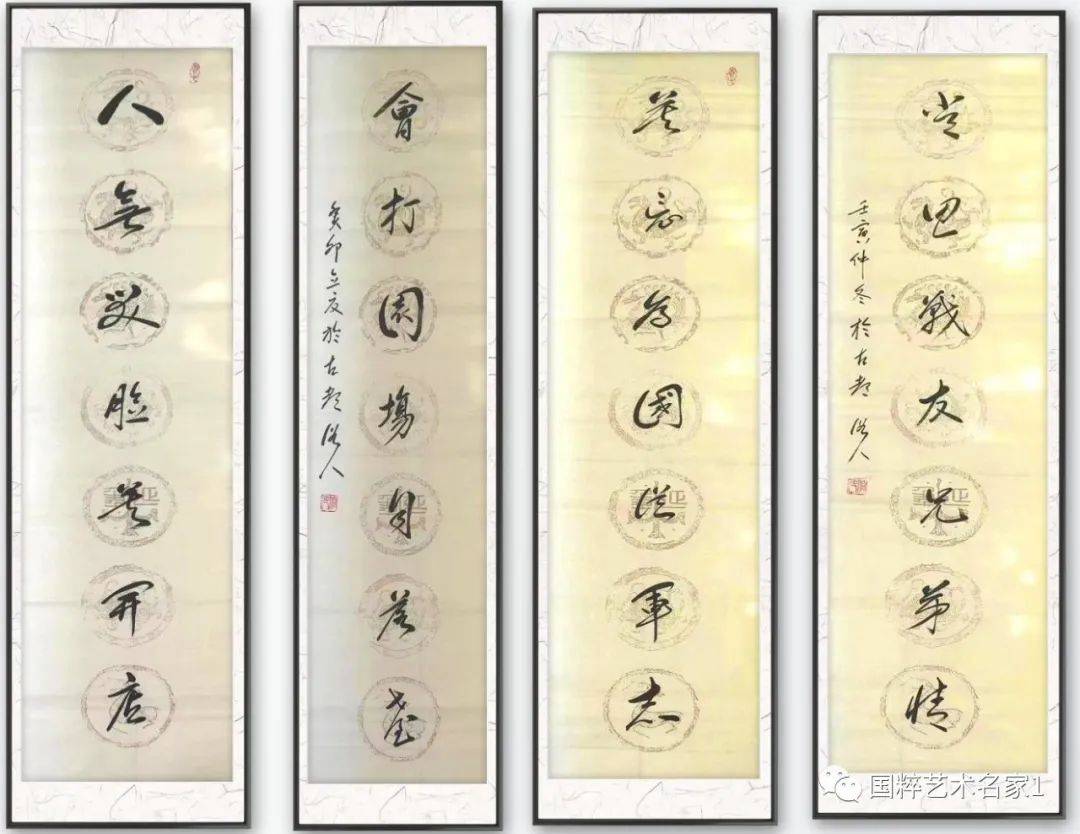 人無笑脸莫開店
會打圓場自落臺
癸卯立夏於古都 人
莫忘為國從軍志
常思戰友兄弟情
壬寅仲冬於古都 人
国粹艺术名家1